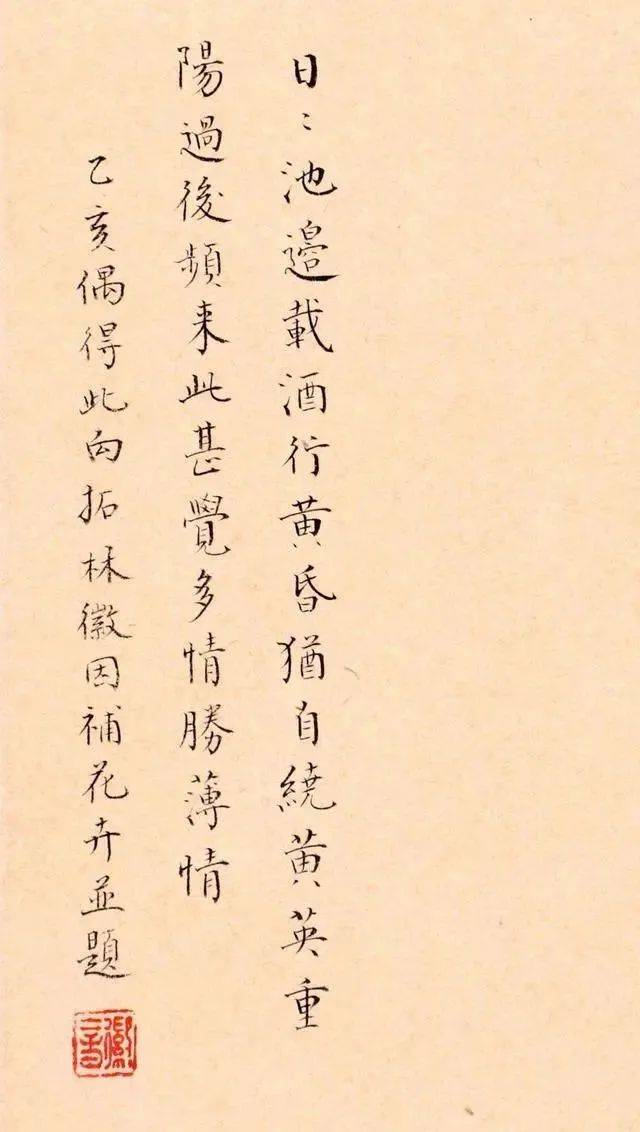 日〻池邉載酒行黄昏猶自繞黄英重
陽過後頻来此甚覺多情勝薄情
乙亥偶得此向拓林徽因補花卉並題
徽音